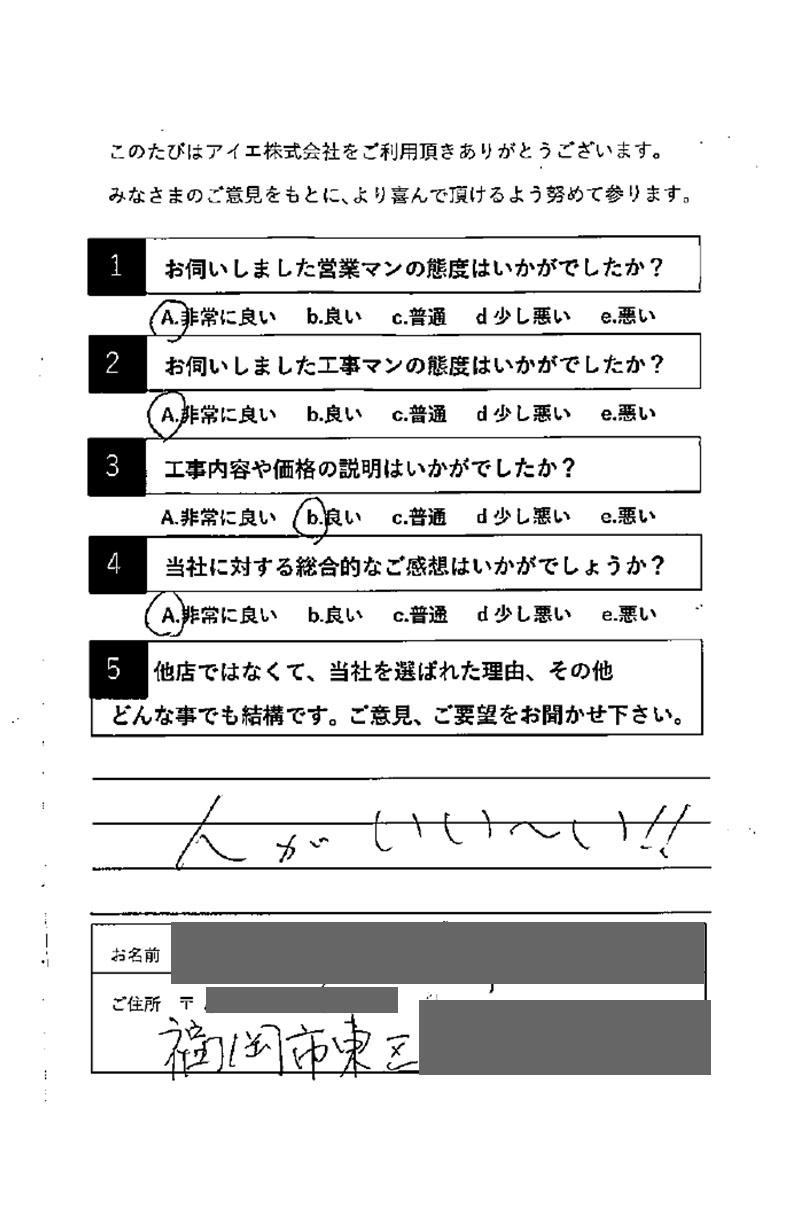 このたびはアイエ株式会社をご利用頂きありがとうございます。
みなさまのご意見をもとに、より喜んで頂けるよう努めて参ります。
1 お伺いしました営業マンの態度はいかがでしたか?
A.非常に良い b.良い c.普通 d 少し悪い e.悪い
2 お伺いしました工事マンの態度はいかがでしたか?
A.非常に良い b.良い c.普通 d 少し悪い e.悪い
3 工事内容や価格の説明はいかがでしたか?
A.非常に良い b.良い c.普通 d 少し悪い e.悪い
4 当社に対する総合的なご感想はいかがでしょうか?
A.非常に良い b.良い c.普通 d 少し悪い e.悪い
5 他店ではなくて、当社を選ばれた理由、その他
どんな事でも結構です。ご意見、ご要望をお聞かせ下さい。
人がいい〜い!!
お名前
ご住所 〒
福岡市東区